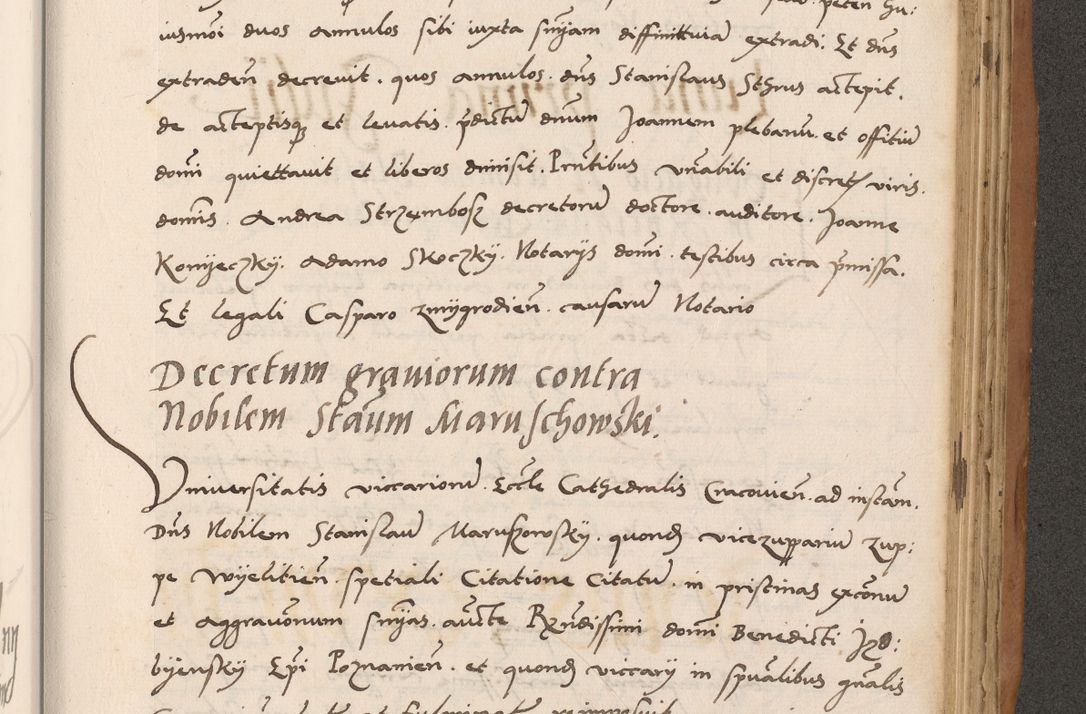 iusmoi duos annulos sibi iuxta snīam diffinittivā extradi. Et dns
extraden̄ decrevit. quos annulos. dns Stanislaus Sthrus accepit.
de acceptisqȝ et levatis. p̄dictū dnum Joannem plebanū. et offitiū
domi quiettavit et liberos dimisit. Pn̄tibus vn̄abili et discret viris.
domīs. Andrea Strzembosz decretorū doctore. auditore. Joanne
Konyeczky. Adamo Skoczky. Notarijs domi. testibus circa p̄missa.
Et legali Casparo zmygrodien̄. causarū Notario
Decretum graviorum contra
Nobilem Staūm Maruschowski.
Vniversitatis viccariorū. Eccle Cathedralis Cracovien̄. ad instām.
Dns Nobilem Stanislaū Maruszowsky. quond vicezupparium zup:
pe Wyelitien̄. spetiali Citatione Citatū. in pristinas excōnū
et aggravōnum snīas. auctte Rxn̄dissimi domi Benedicti Jzd:
byensky Ep̄i Poznanien̄. et quond viccary in spūalibus gn̄alis